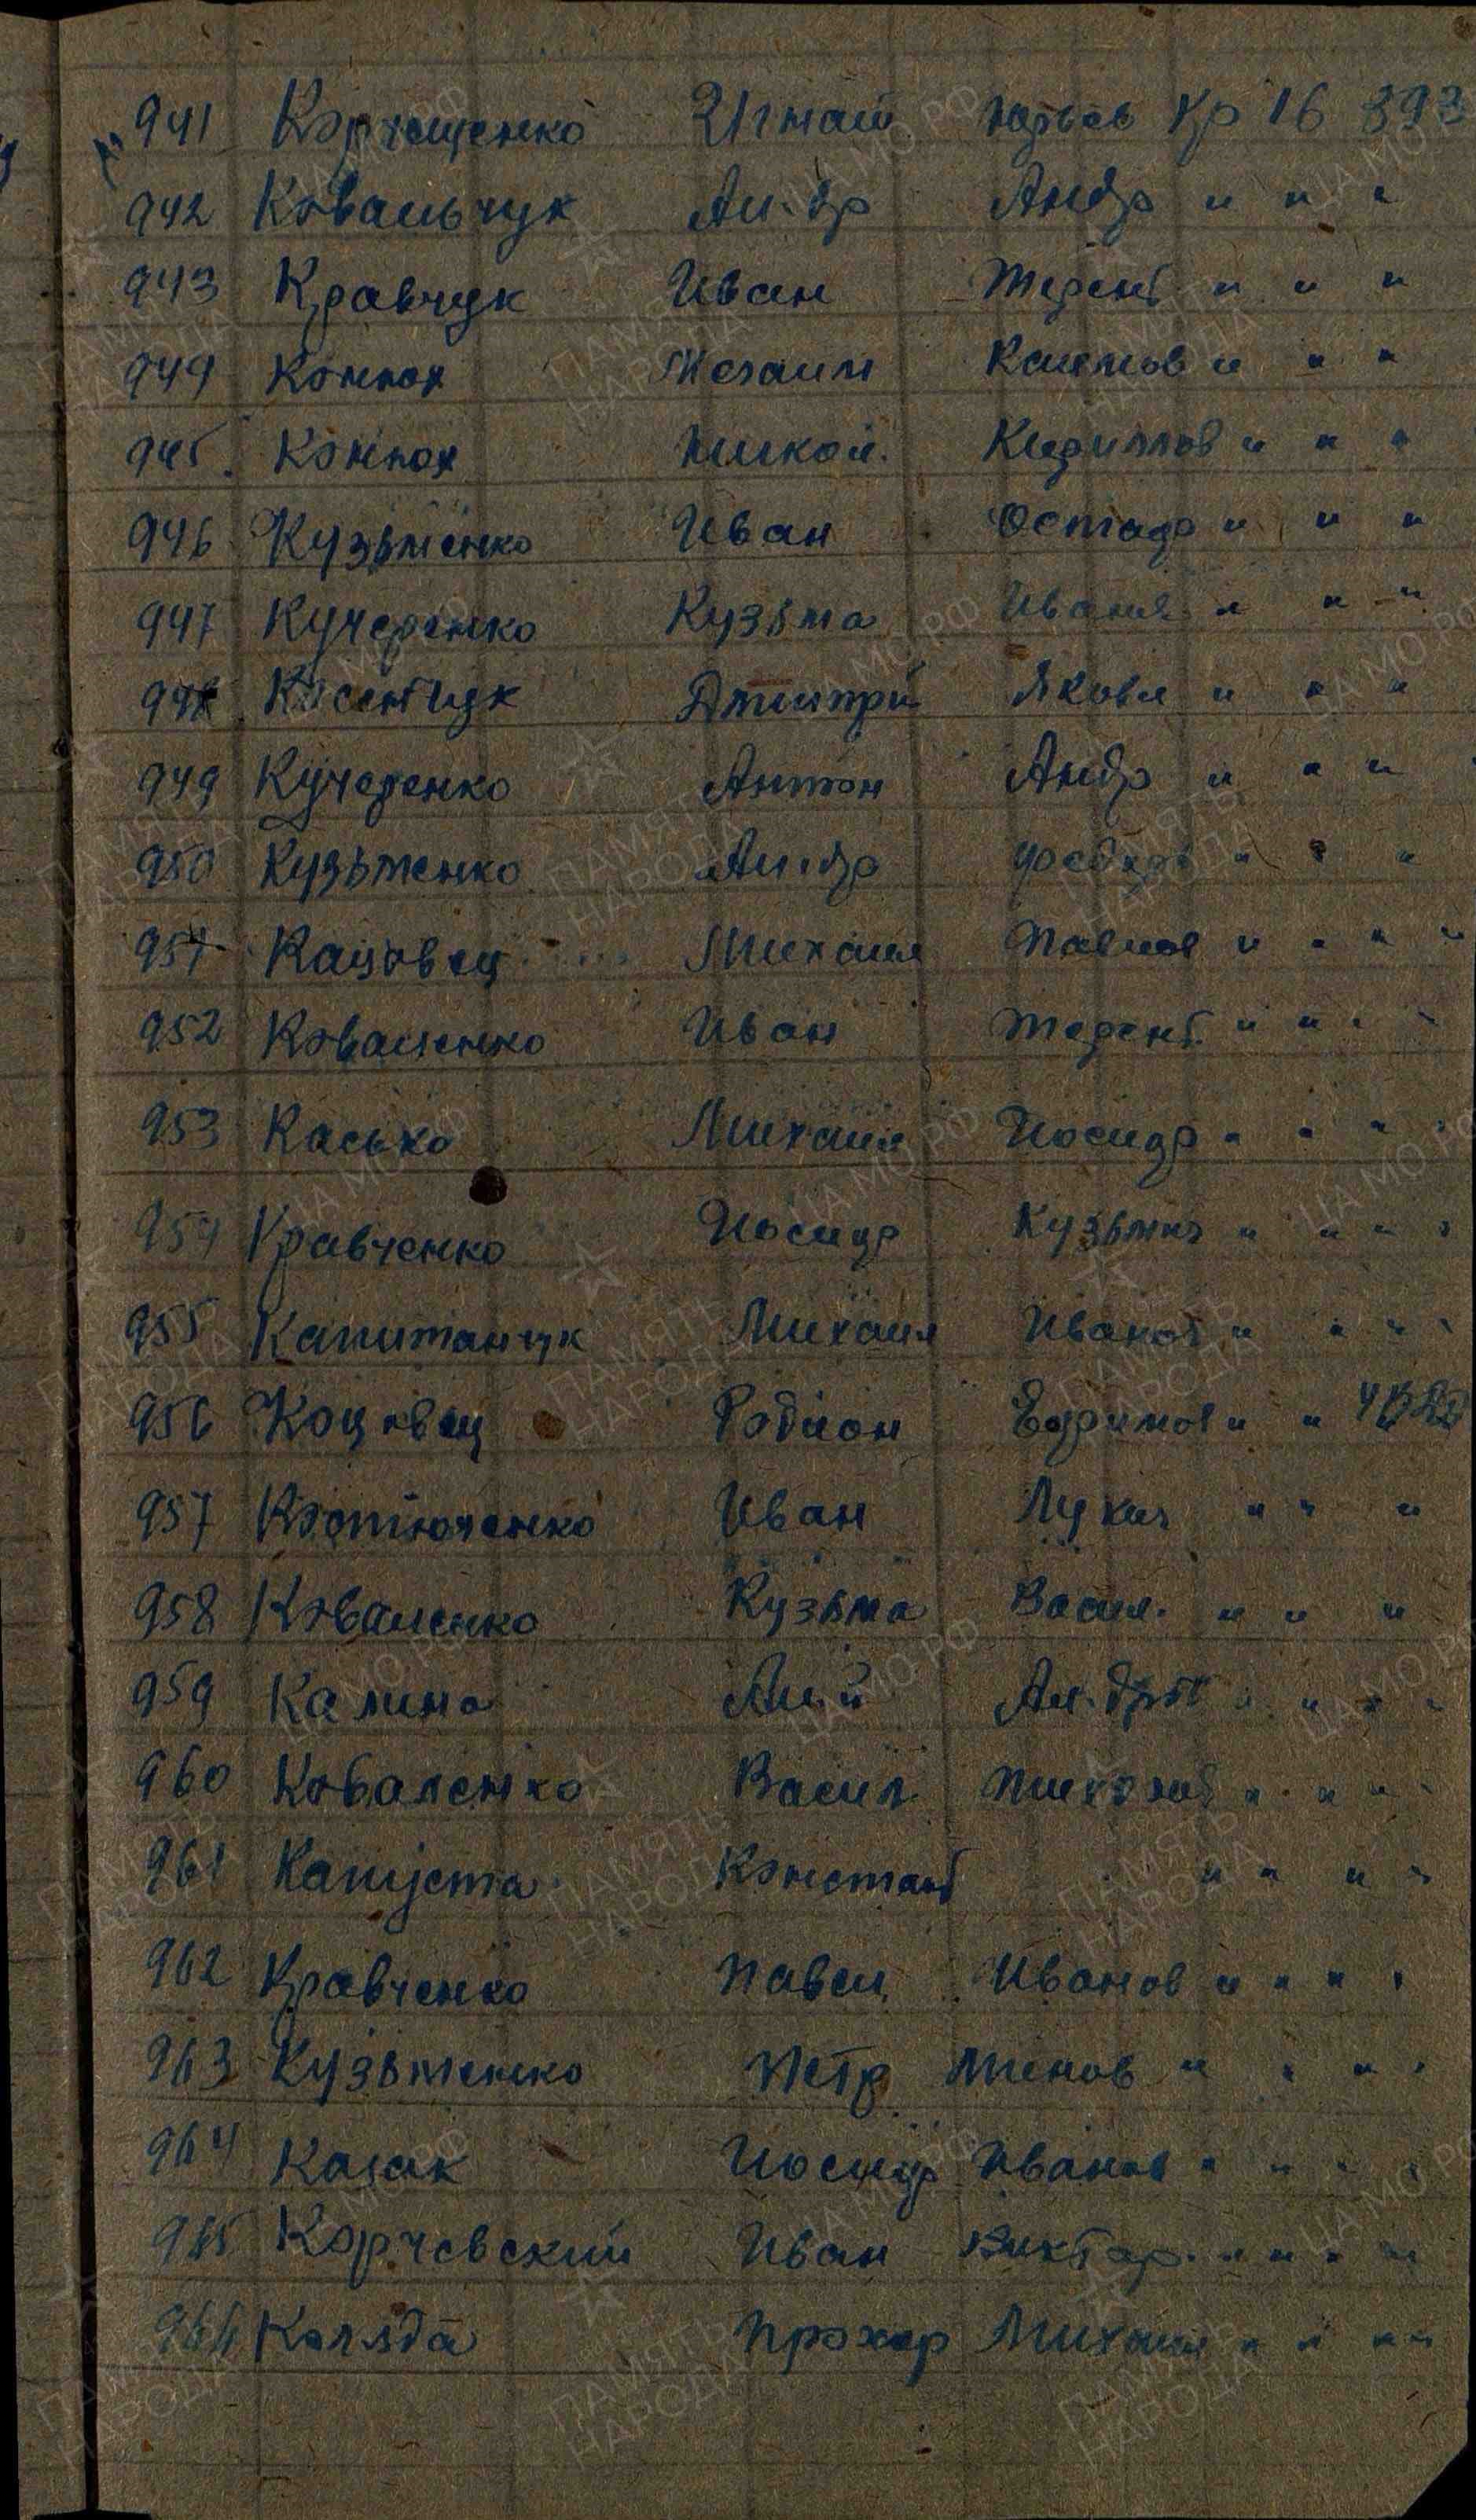 941 Корчещенко Игнат Юрьев Кр 16 393
942 Ковальчук Ан.др Андр " " "
943 Кравчук Иван Терент. " " "
944 Конпох Климов " " "
945. Конпох Никол. Кириллов " " "
946 Кузьменко Иван Остап " " "
947 Кучеренко Кузьма Иванов. " " "
948 Дмитри Яковл " " "
949 Кучеренко Антон Андр " " "
950 Кузьменко Ан.др Федор " " "
951 Кацовец Михаил Павлов " " " "
952 Коваленко Иван Терент. " " " "
953 Касько Михаил Иосиф " " " "
954 Кравченко Иосиф Кузьмич " " " "
955 Капитанчук Михаил Иванов " " " "
956 Коцовец Родион Ефимов " "
957 Костюченко Иван Лукич " " "
958 Коваленко Кузьма Васил. " " "
959 Калина Ал.й Ан.др " " " "
960 Коваленко Васил. Николав " " " "
961 Капуста Констант " " " "
962 Кравченко Павел Иванов " " " "
963 Кузьменко Петр Минов " " " "
964 Казак Иосиф Иванов " " " "
965 Корчевский Иван Виктор. " " " "
966 Коляда Прохор Михаил " " " "